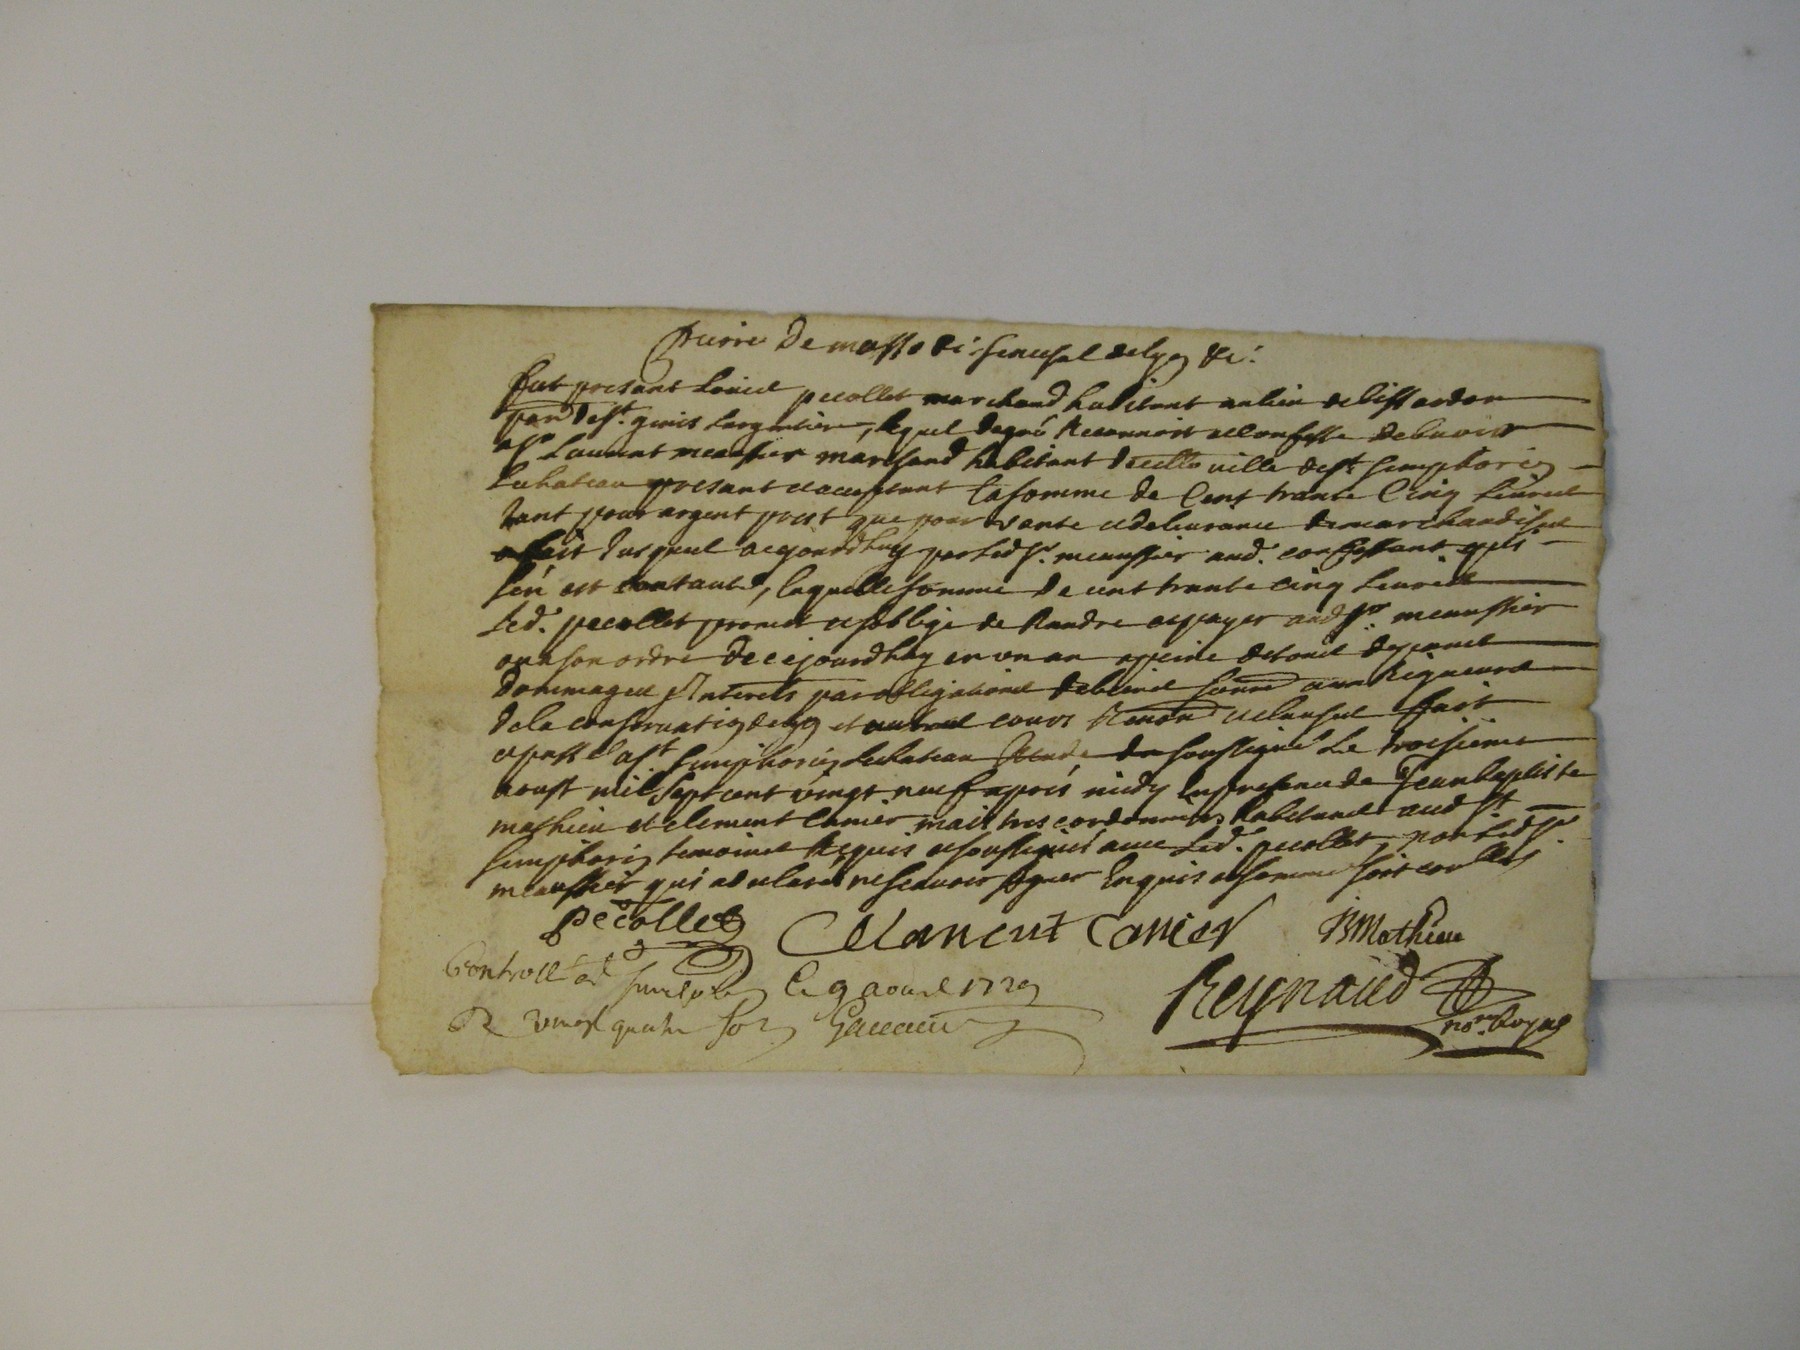 Pierre De masso &c: senechal delyon &c:
fut present Louis pecollet marchand habitant au lieu de
par de st. genis Largentiere, lequel de gré Reconnoit et confesse debvoir
a sr Laurent meaussier marchand habitant de cette ville de st. simphorien
Le chateau present et acceptant La somme de Cent trante Cinq Livres
tant pour argent prest que pour vante et delivrance de marchandises
a fait Jusques acejourdhuy par led sr. meaussier aud. confessant qui
sen est contanté, laquelle somme de cent trante cinq Livres
Led. pecollet promet et soblige de Randre et payer aud sr. meaussier
ou a son ordre de cejourdhuy en un an a peine de tous depans
dommages et Interets par obligations de biens soumi aux Rigueurs
de la conservation de lyon et autres cours Renon et clauses fait
et passé a st simphorien Le chateau Etude du soussigné Le troisieme
aoust mil sept cent vingt neuf apres midy En presence de Jean baptiste
mathieu et clement Canier maitres cordonniers habitants aud st
simphorien temoins Requis et soussignés avec Led. pecollet, non led sr.
meaussier qui a declaré ne scavoir signer Enquis et sommé soit controllé
pecollet Clanent Canier JBMathieu
Controllé a st simphorien Le 9 aoust 1729
R vingt quatre sols
Reynaud
nore. Royal